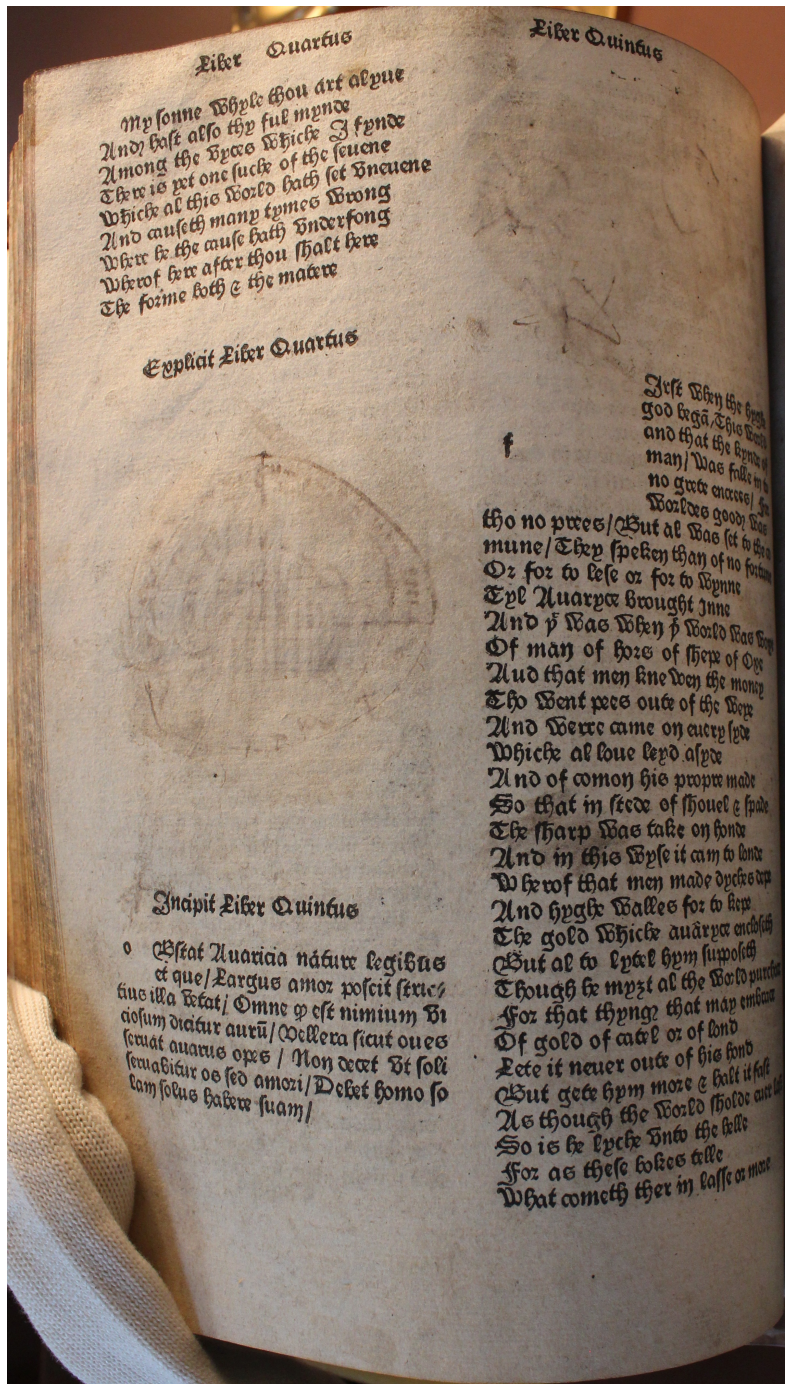 Liber Quartus
My sonne Whyle thou art alyue
And hast also thy ful mynde
Among the vyces Whiche I fynde
There is yet one suche of the seuene
Whiche al this World hath set vneuene
And causeth many tymes Wrong
Where he the cause hath vnderfong
Wherof here after thou shalt here
The forme both & the matere
Explicit Liber Quartus
Incipit Liber Quintus
o Bstat Auaricia nature legibus
et que/Largus amor poscit stric/
tius illa vetat/ Omne qp est nimium vi
ciosum dicitur aurū/Vellera sicut oues
seruat auarus opes / Non decet vt soli
seruabitur os sed amori/Debet homo so
lam solus habere suam/
Liber Quintus
f
Irst When the hygh
god begā/This World
and that the kynde of
man/ Was falle in to
no grete encrees/
Worldes good Was
tho no prees/But al Was set to the
mune/They speken than of no fortune
Or for to lese or for to Wynne
Tyl Auaryce brought Inne
And yͭ Was When yͤ World Was
Of man of hors of shepe of Oxe
Aud that men kne Wen the money
Tho Went pees oute of the Weye
And Werre came on euery syde
Whiche al loue leyd asyde
And of comon his propre made
So that in stede of shouel & spade
The sharp Was take on honde
And in this Wyse it cam to londe
Wherof that men made dyches depe
And hyghe Walles for to kepe
The gold Whiche auāryce encloseth
But al to lytel hym supposeth
Though he myzt al the World purchace
For that thyng that may embrace
Of gold of catel or of lond
Lete it neuer oute of his hond
But gete hym more & halt it fast
As though the World sholde euer
So is he lyche vnto the helle
For as these bokes telle
What cometh ther in lasse or more